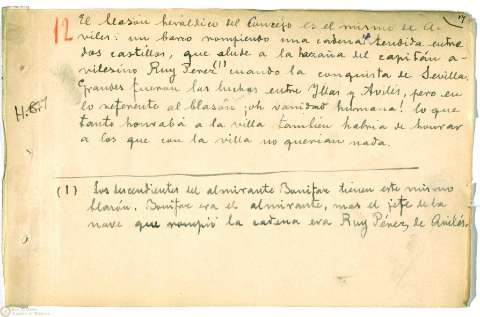 17
12 El blasón heráldico del Concejo es el mismo de A-
vilés: un barco rompiendo una cadena tendida entre
dos castillos, que alude a la hazaña del capitán a-
vilesino Ruy Pérez (1) cuando la conquista de Sevilla.
Grandes fueron las luchas entre Yllas y Avilés, pero en
lo referente al blasón ¡oh vanidad humana! lo que
tanto honraba a la villa también habría de honrar
a los que con la villa no querían nada.
(1) Los descendientes del almirante Bonifaz tienen este mismo
blasón. Bonifaz era el almirante, mas el jefe de la
nave que rompió la cadena era Ruy Pérez, de Avilés.